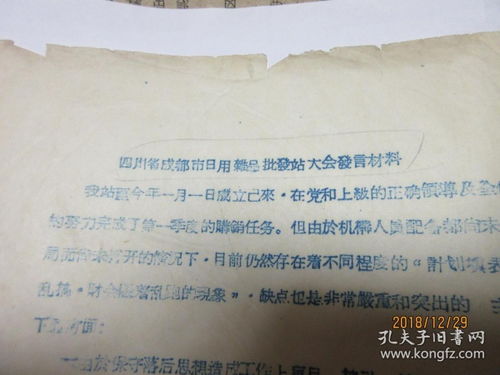 四川省成都市日用雜品批發站大会發言材料
我站至今年一月一日成立已來，在党和上級的正确領導及全体
的努力完成了第一季度的購銷任务。但由於机構人員配备都尚未
局面尚未打开的情况下，目前仍然存在着不同程度的“計划填表
乱搞，財会跟着乱跑的現象”，缺点也是非常嚴重和突出的
下 方面：
一由於保守落后思想造成工作上
2018/12/29
孔夫子旧书网
www.kongfz.com